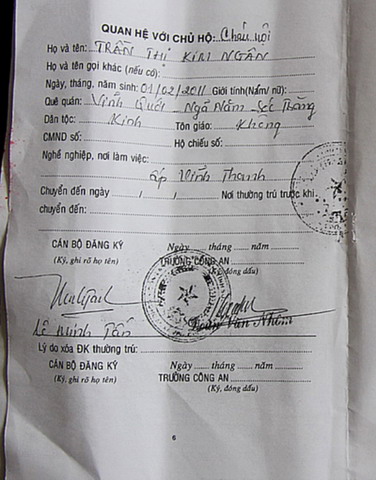 QUAN HỆ VỚI CHỦ HỘ: Cháu nội
Họ và tên: TRẦN THỊ KIM NGÂN
Họ và tên gọi khác (nếu có):
Ngày, tháng, năm sinh: 01/02/2011 Giới tính (Nam/ nữ):
Quê quán: Vĩnh Quới - Ngã Năm - Sóc Trăng
Dân tộc: Kinh Tôn giáo: Không
CMND số: Hộ chiếu số:
Nghề nghiệp, nơi làm việc:
ấp Vĩnh Thanh
Chuyển đến ngày / / Nơi thường trú trước khi
chuyển đến:
CÁN BỘ ĐĂNG KÝ Ngày ..... tháng ..... năm .........
(Ký, ghi rõ họ tên) TRƯỞNG CÔNG AN
(Ký, đóng dấu)
Lê Minh Tấn Văn
Lý do xóa ĐK thường trú:
CÁN BỘ ĐĂNG KÝ Ngày ..... tháng ..... năm .........
(Ký, ghi rõ họ tên) TRƯỞNG CÔNG AN
(Ký, đóng dấu)
6